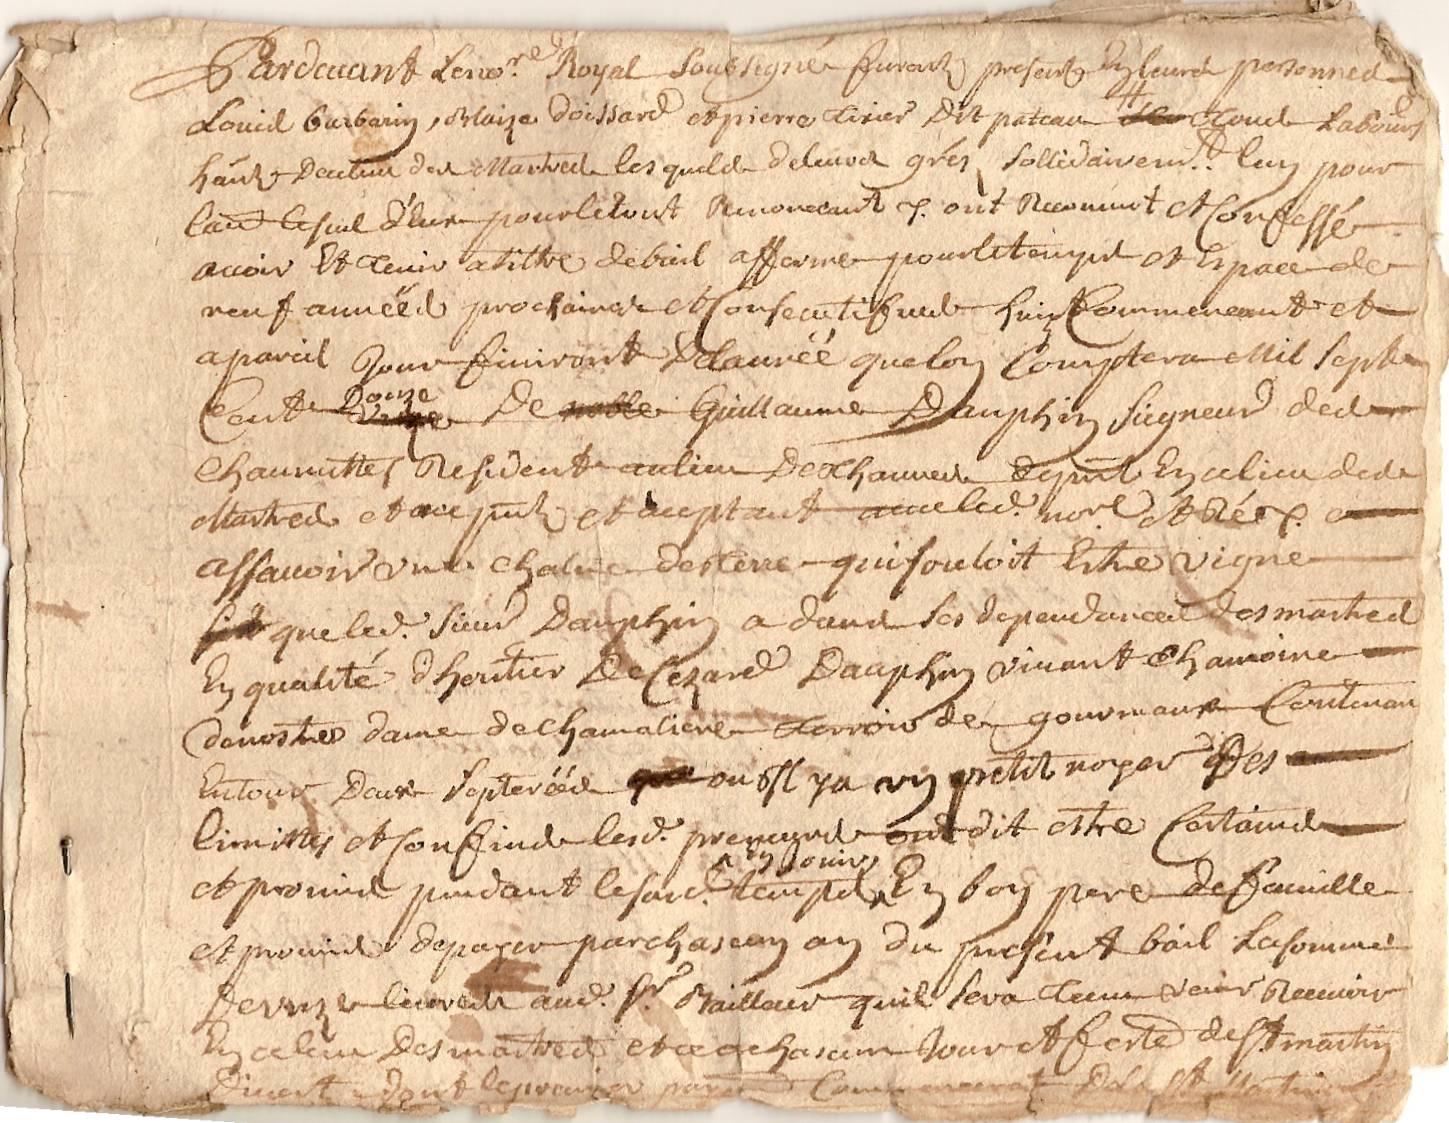 Pardevant Le no.re Royal Soubsigné furent present En leurs personnes
Louis barbarin, Blaize Doissard et pierre Tixier Dit pateau Tous Laboure
hâns Du lieu des Martres lesquels de leurs grés sollidairem.t lun pour
laut. le seul d'Eux pour le tout Renonceant &. ont Recognut et Confessé
avoir Et Tenir a tiltre de bail afferme pour le temps et Espace de
neuf années prochaines et Consecutifves huy Commenceant et
a pareil Jour finiront De lannéé que lon Comptera Mil Sept
Cent Douze De noble Guillaume Dauphin Seigneur des
Chaumettes Resident au lieu De En ce lieu des
Martres et ace pnt et acceptant avec led. no.re et &.
assavoir une de Terre qui souloit Estre vigne
que led. Sieur Dauphin a dans les dependances des martres
En qualité d'heritier De Cezard Dauphin vivant Chanoine
de nostre dame de Chamaliere Terroir de Contenan
Entour Deux septeréés ou Il y a un petit noyer Des
limittes et Confins lesd. preneurs ont dit estre Certains
et promis pendant le susd. temps en Jouir En bon pere de famille
et promis de payer par chascun an du present bail La somme
De unze livres aud. Sr. Bailleur quil sera Tenu venir Recevoir
En ce lieu Des martres et ce a chascun Jour et feste de St martin
Divert dont le premier Commencerat De la St. Martin